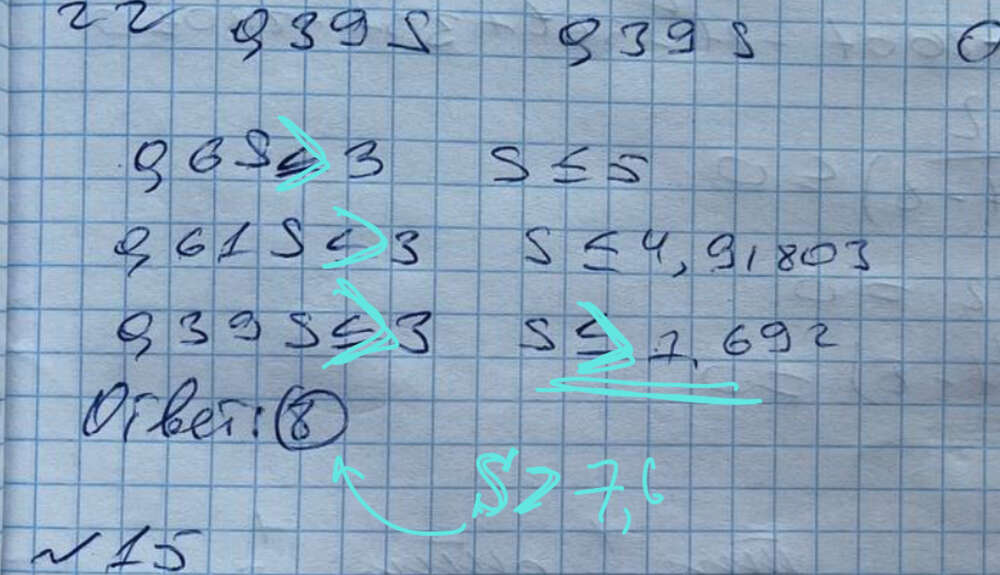 22 0,39S 0,39S
0,6S≤3 S≤5
0,61S≤3 S≤4,91803
0,39S≤3 S≤7,692
Ответ: 8
S>7,6
№15